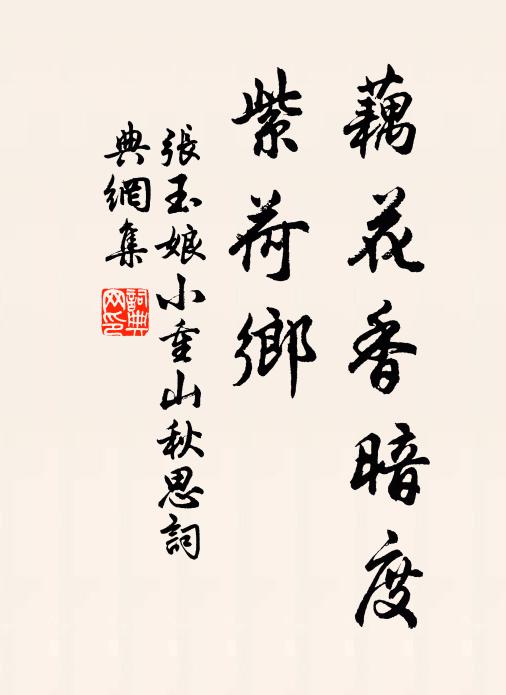 藕花香暗度
紫荷鄉
張玉娘小重山秋思詞
典網集
詞典網印